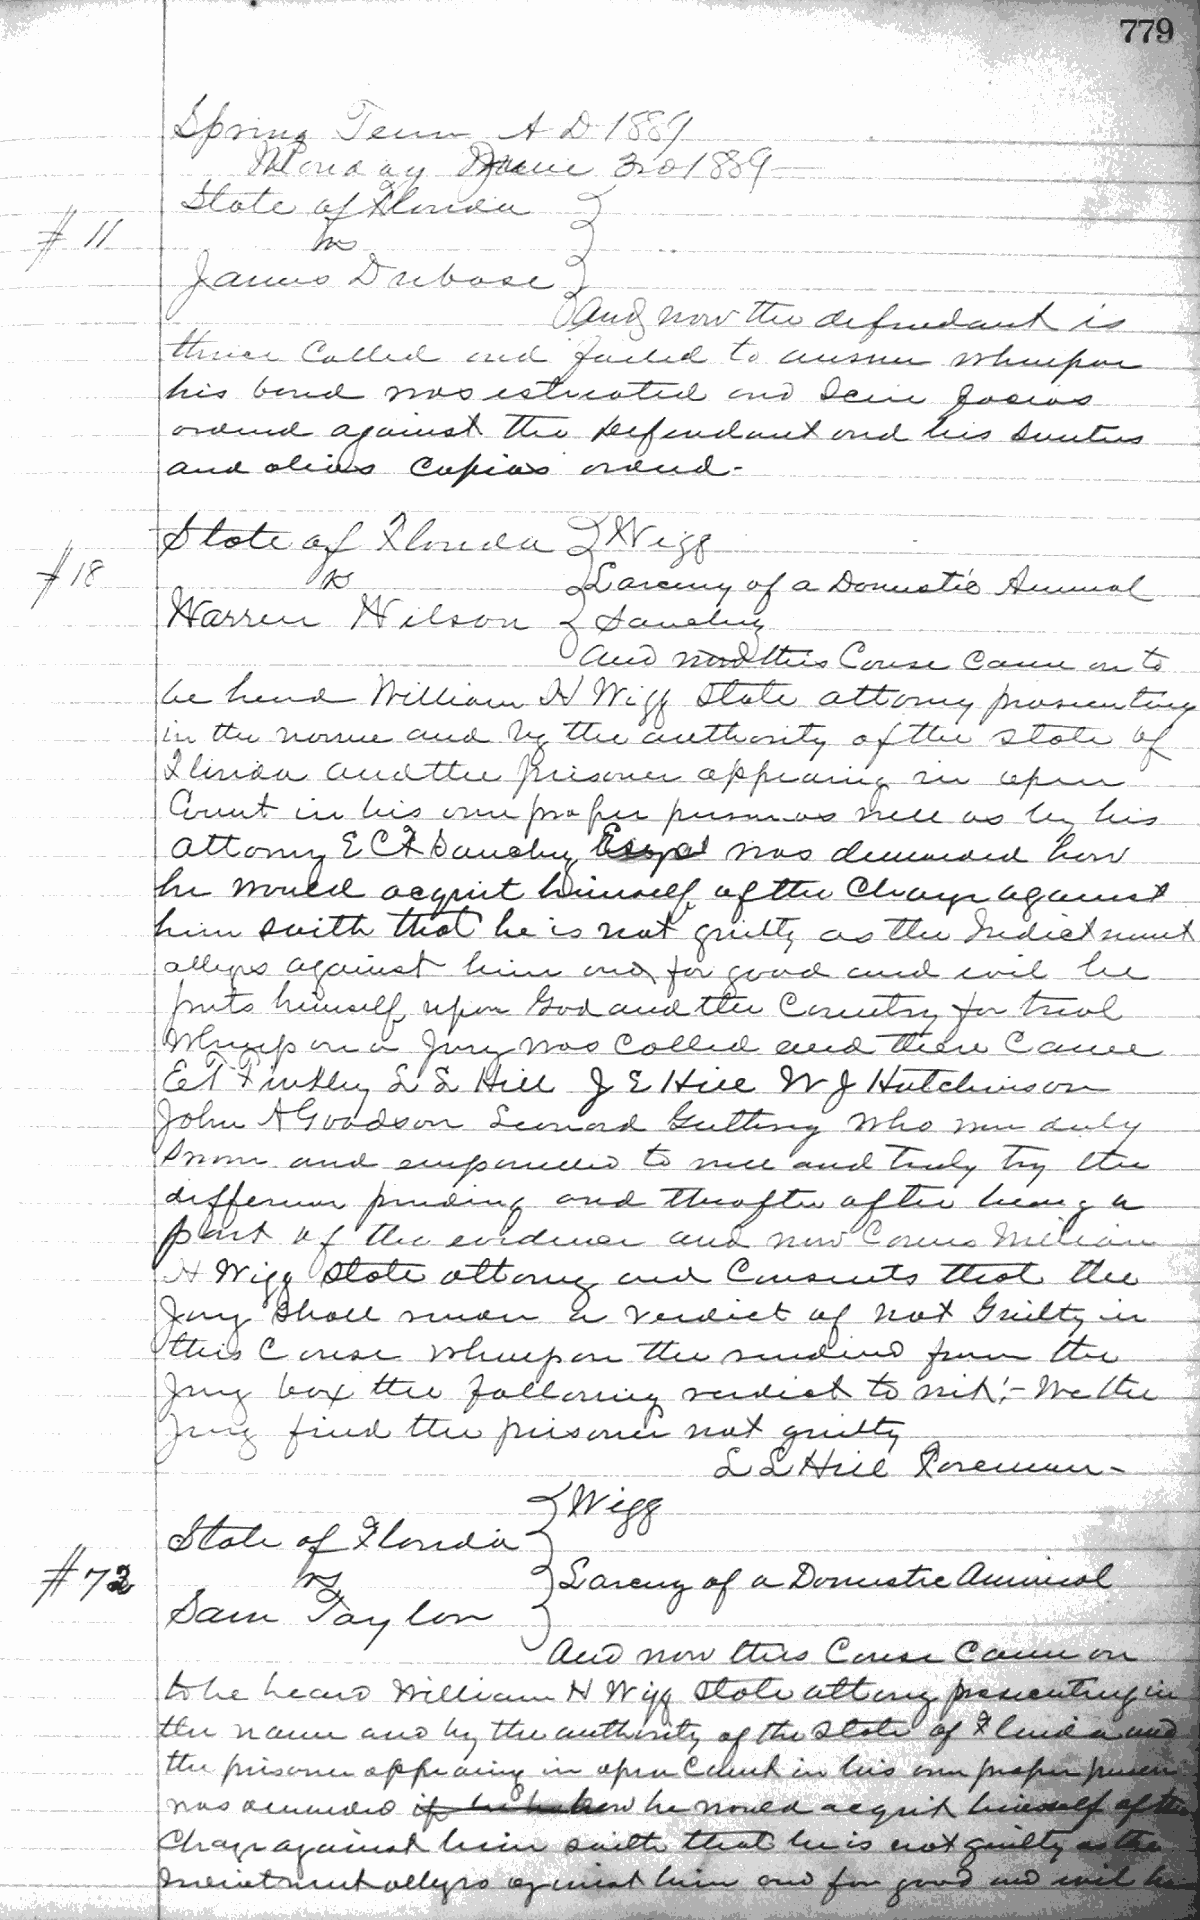 779
Spring Term A D 1889
Monday June 3rd 1889
State of Florida
# 11 vs
James Dubose
And now the defendant is
thrice Called and failed to answer whereupon
his bond was estreated and Scire facias
ordered against the Defendant and his Sureties
and alias Capias ordered -
State of Florida Wigg
# 18 vs Larceny of a Domestic Animal
Warren Wilson Sanchez
And now this Cause Came on to
be heard William H Wigg State attorney prosecuting
in the name and by the authority of the State of
Florida and the prisoner appearing in open
Court in his own proper person as well as by his
attorney E C F Sanchez Esqr was demanded how
he would acquit himself of the Charge against
him saith that he is not guilty as the Indictment
alleges against him and for good and evil he
puts himself upon God and the Country for trial
Whereupon a Jury was Called and there Came
E T Finkley L L Hill J E Hill W J Hutchinson
John A Goodson Leonard Gutting who were duly
Sworn and empanelled to well and truly try the
difference pending and thereafter after hearing a
part of the evidence and now Comes William
H Wigg State attorney and Consents that the
Jury Shall render a verdict of not Guilty in
this Cause whereupon the rendered from the
Jury box the following verdict to wit:- We the
Jury find the prisoner not guilty
L L Hill Foreman -
Wigg
State of Florida
# 72 vs Larceny of a Domestic Animal
Sam Taylor
And now this Cause Came on
to be heard William H Wigg State attorney prosecuting in
the name and by the authority of the State of Florida and
the prisoner appearing in open Court in his own proper person
was demanded if he how he would acquit himself of the
Charge against him saith that he is not guilty as the
Indictment alleges against him and for good and evil he